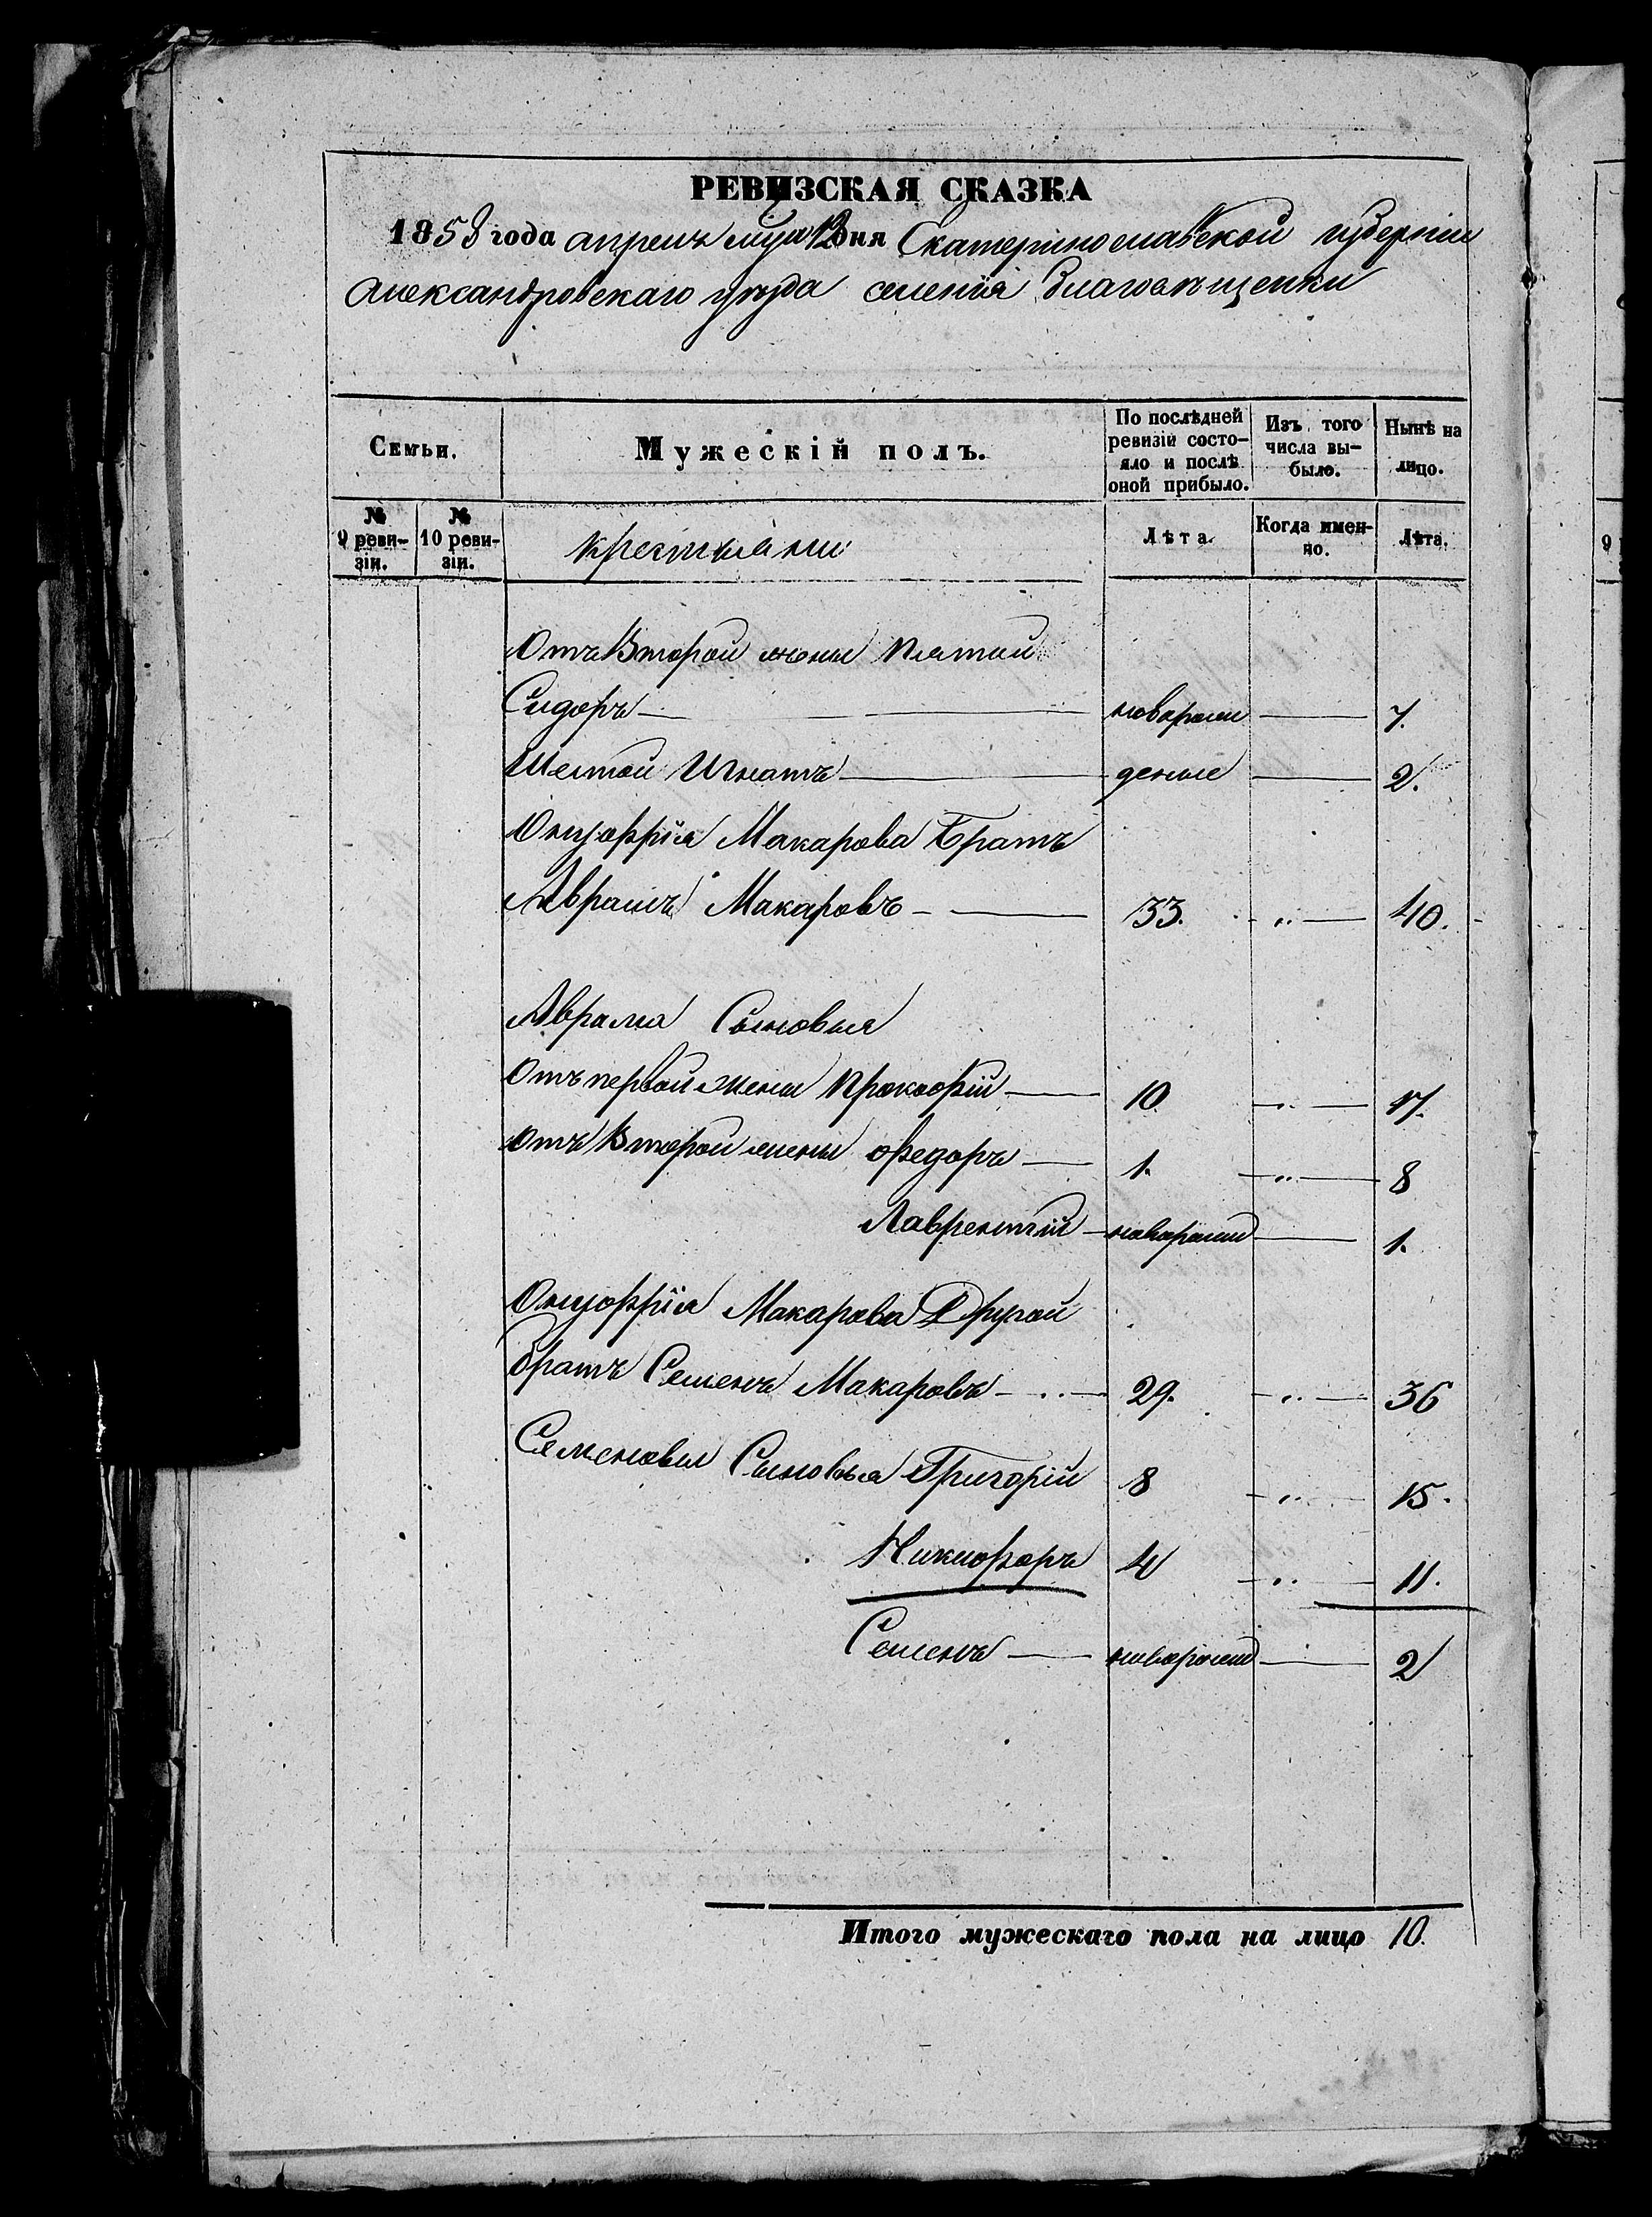 РЕВИЗСКАЯ СКАЗКА
1858 года апреля мца 12 дня Екатеринославской губернии
Александровскаго уезда селения Благовѣщенки
Семьи.
Мужескій полъ.
По послѣдней ревизіи состо-
яло и послѣ
оной прибыло.
Изъ того
числа вы-
было.
Нынѣ на
лицо.
№
9 реви-
зіи.
№
10 реви-
зіи.
крестьяне
Лѣта.
Когда имен-
но.
Лѣта.
Отъ Второй жены пятый
Сидоръ — новорож — 7.
Шестой Игнатъ — денные — 2.
Онуфрія Макарова Братъ
Аврамъ Макаровъ — 33. „ 40.
Аврама Сыновья
Отъ первой жены Прокофій — 10 „ 17.
Отъ Второй жены Федоръ — 1. „ 8
Лаврентій — новорожд — 1.
Онуфрія Макарова Другой
братъ Семенъ Макаровъ — 29. „ 36
Семеновы Сыновья Григорій 8 „ 15.
Никифоръ 4 „ 11.
Семенъ — новорожд — 2
Итого мужескаго пола на лицо 10.